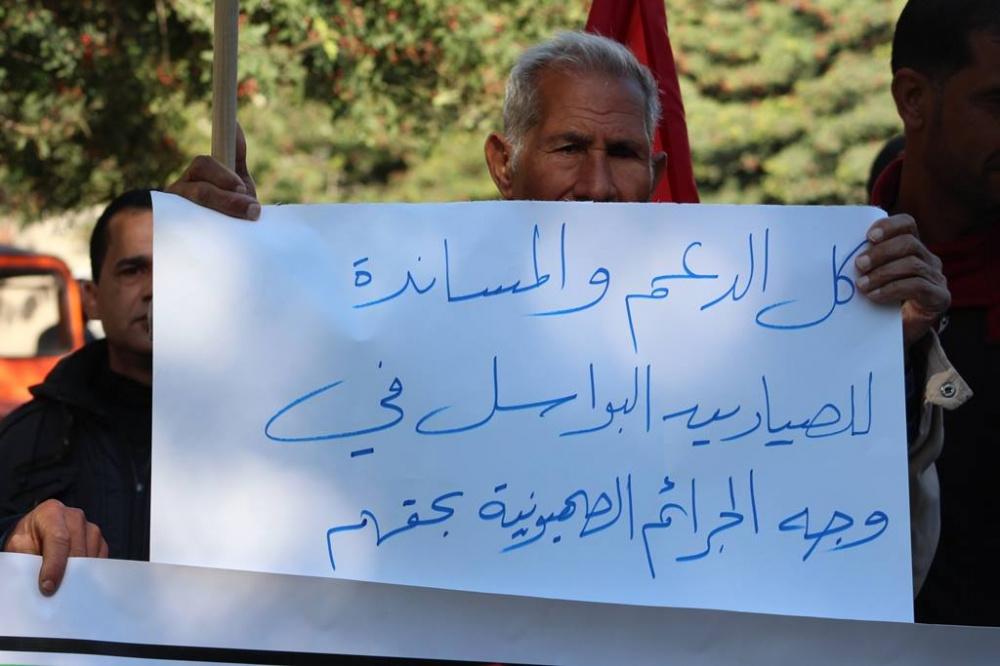 كل الدعم والمساندة
للصيادين البواسل في
وجه الجرائم الصهيونية بحقهم